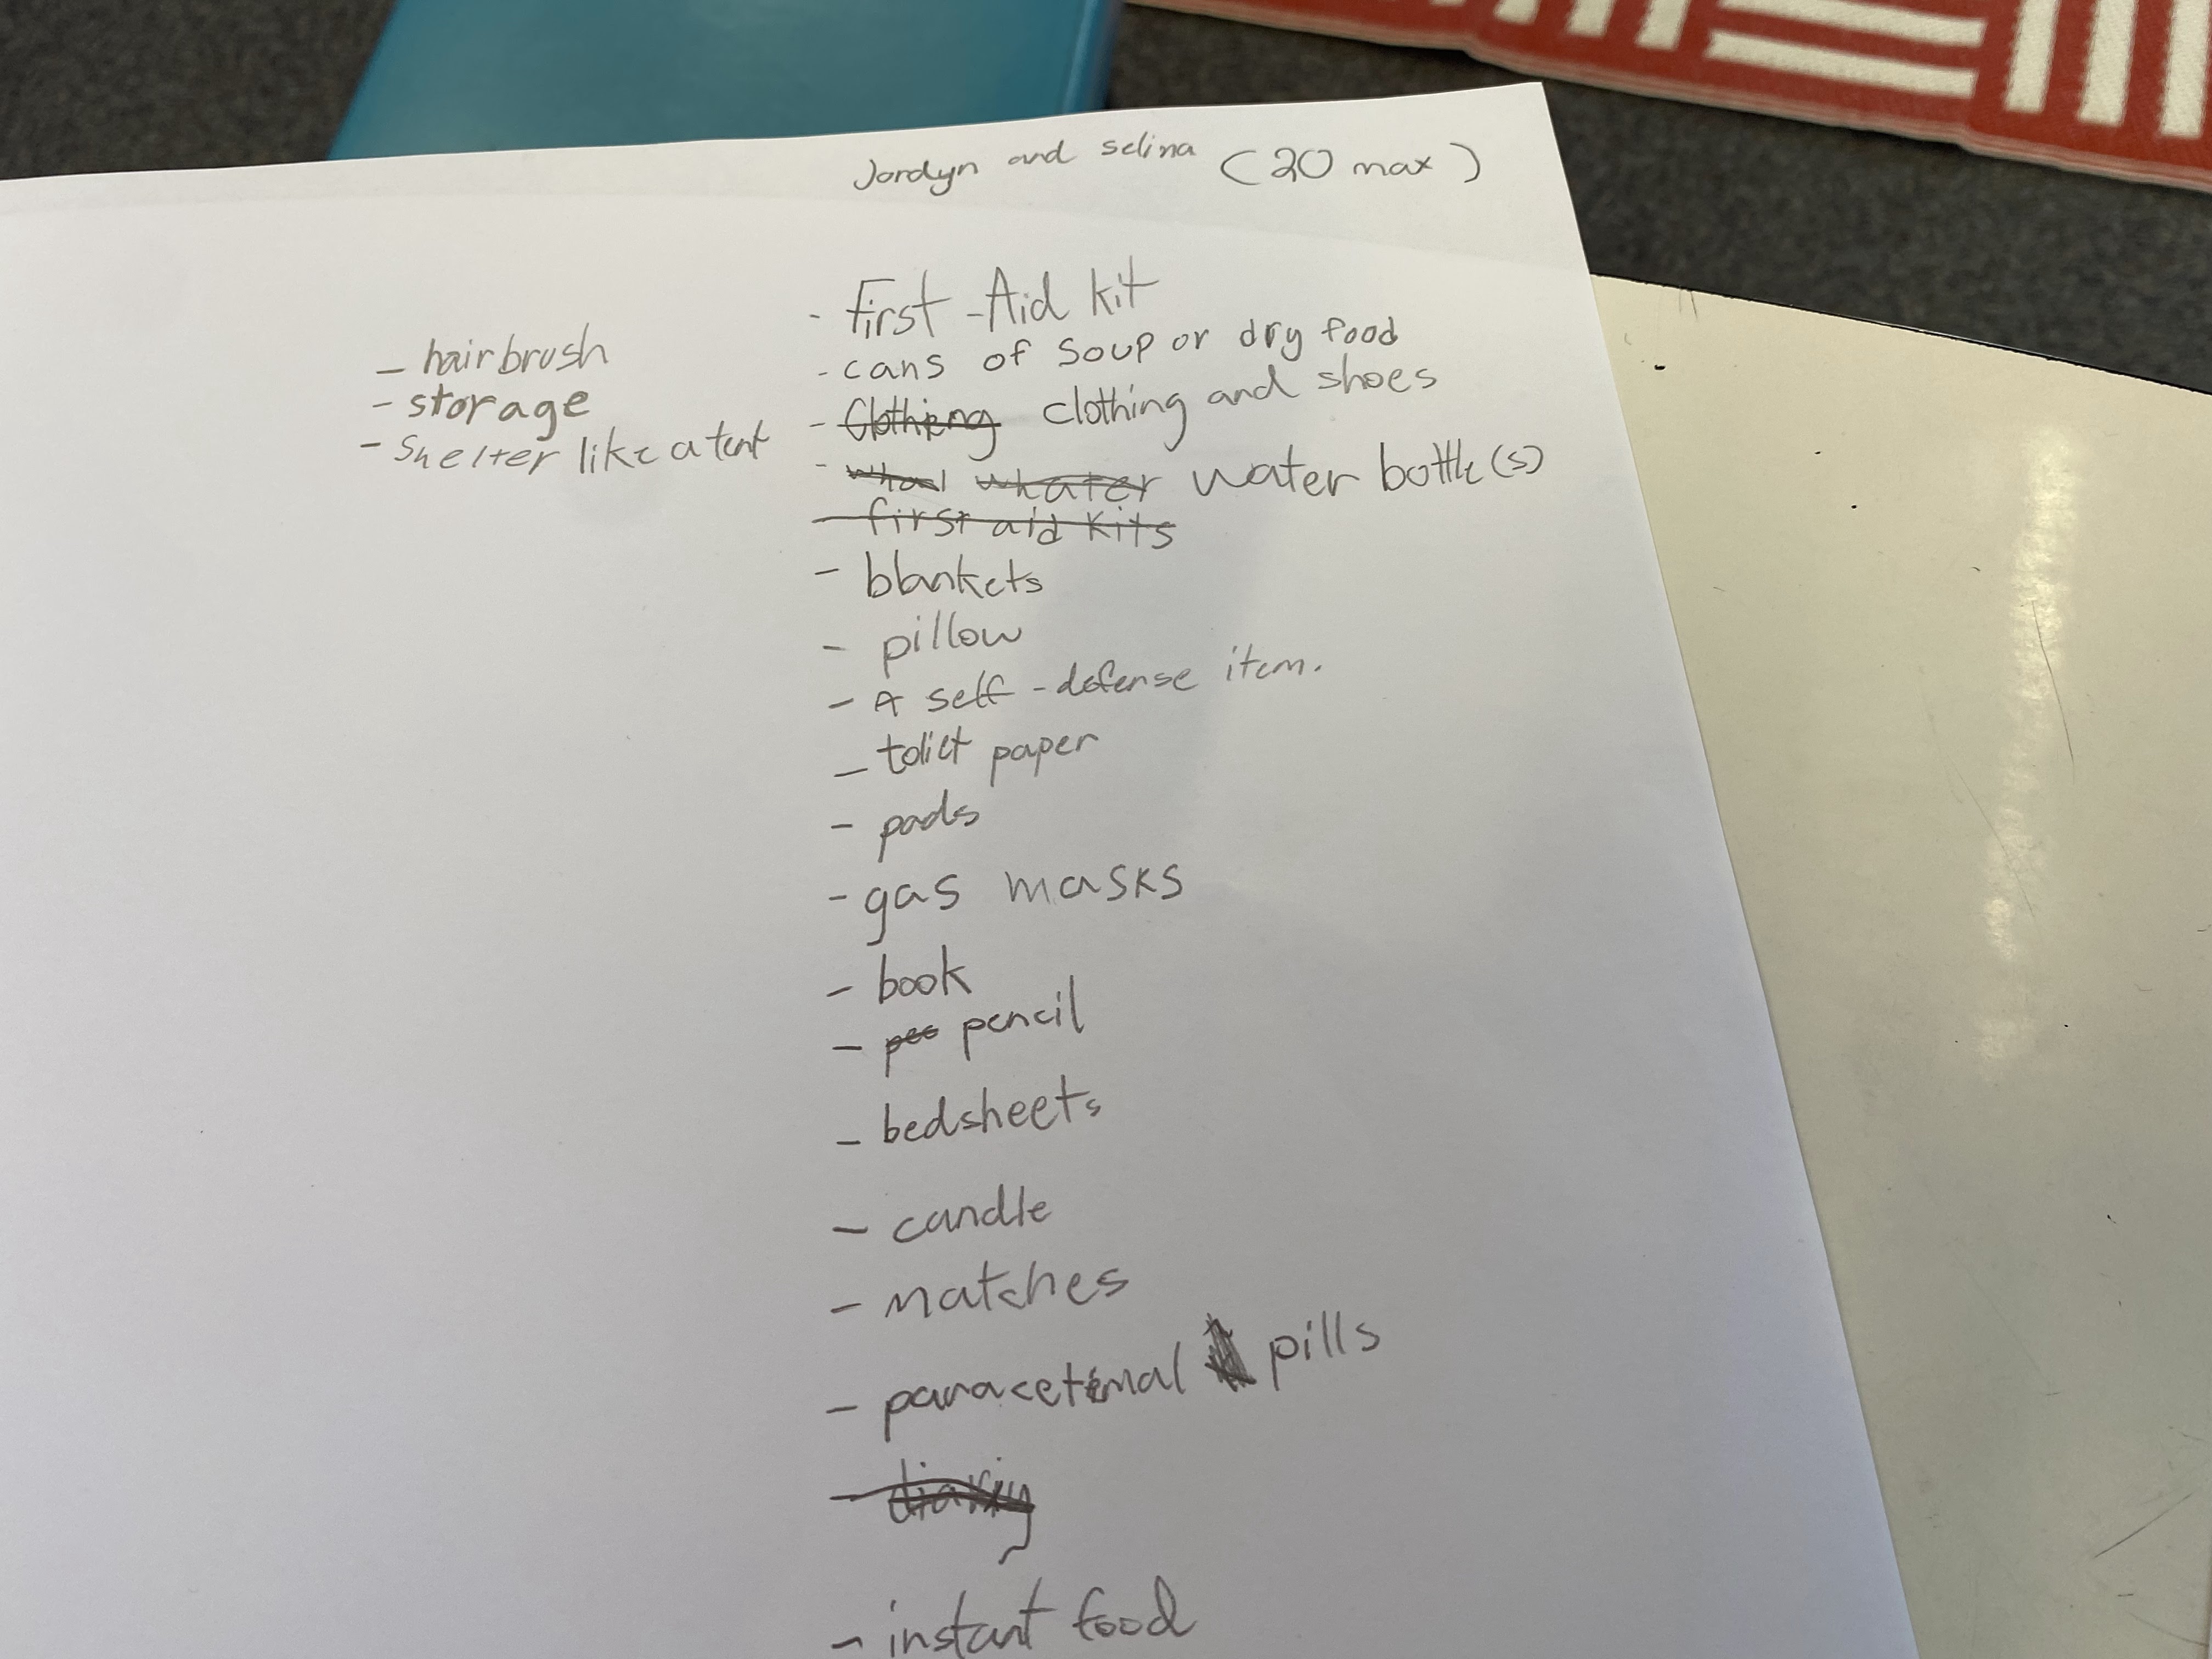 Jordyn and selina (20 max)
- First-Aid kit
- cans of soup or dry food
- Clothing clothing and shoes
- whater water bottle(s)
- first aid kits
- blankets
- pillow
- A self-defense item.
- toliet paper
- pads
- gas masks
- book
- pencil
- bedsheets
- candle
- matches
- paracetemal pills
- instant food
- hairbrush
- storage
- Shelter like a tent